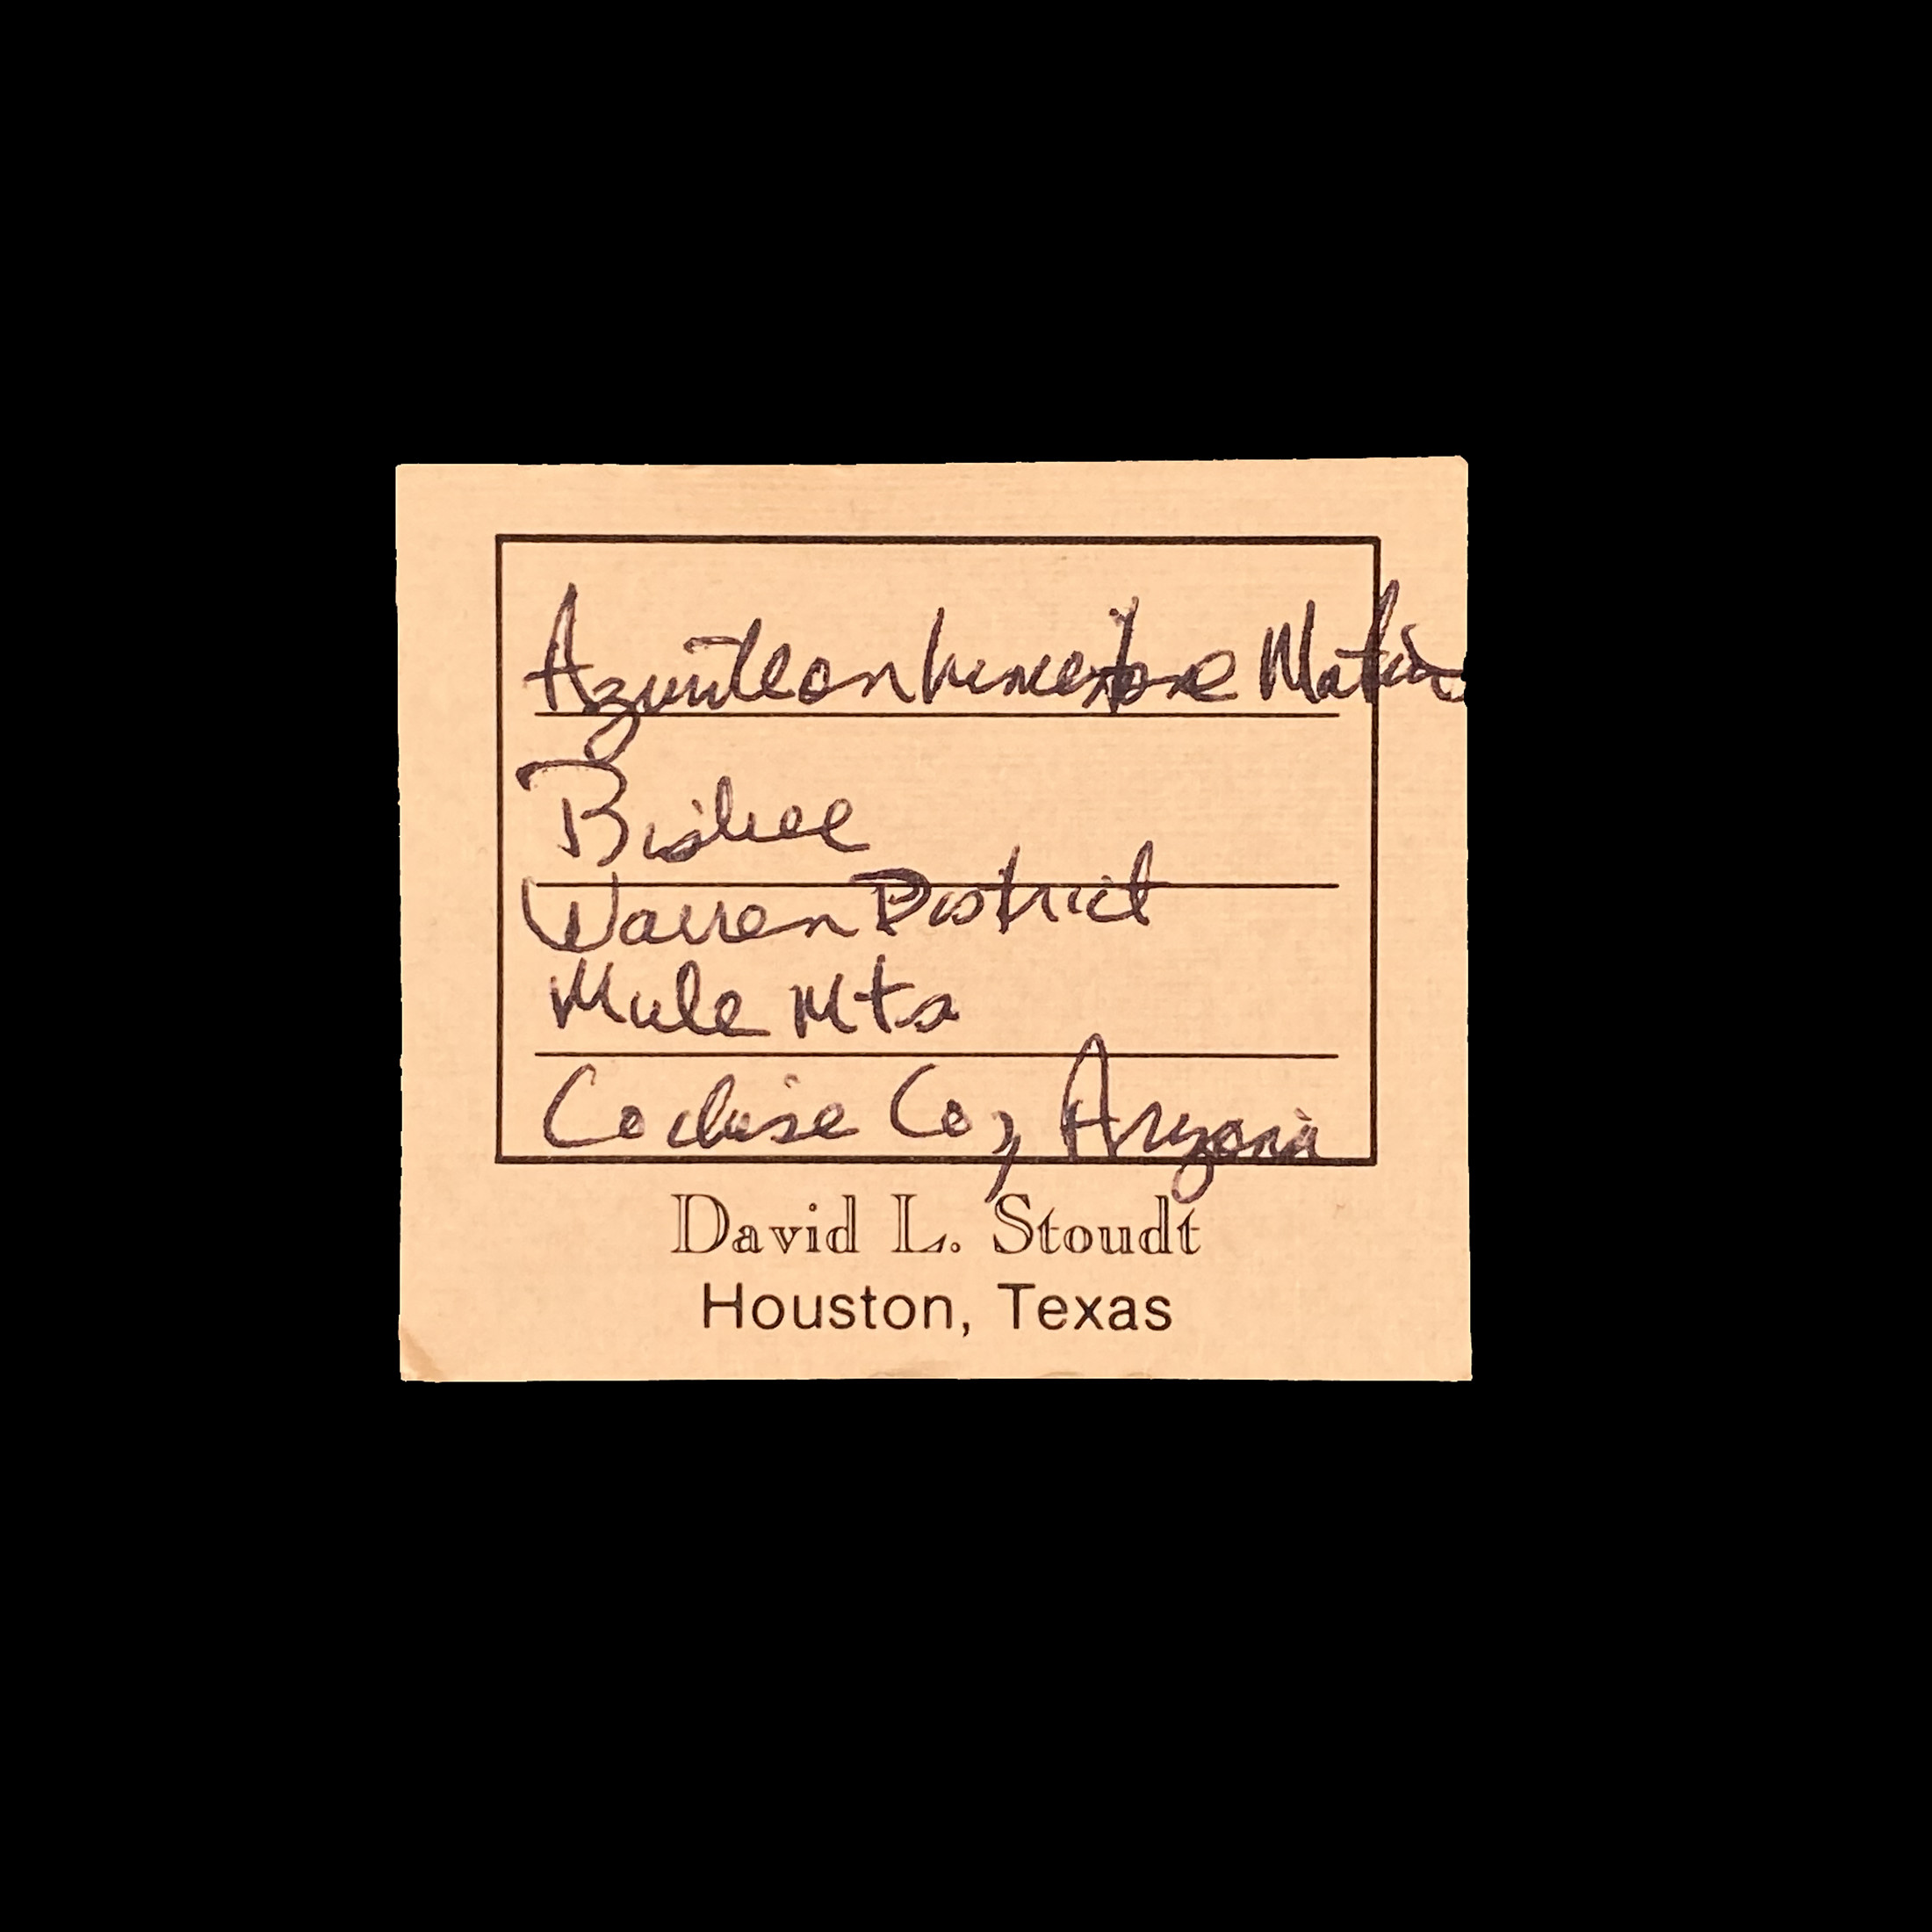 Azurite on limestone Matrix
Bisbee
Warren District
Mule Mts
Cochise Co, Arizona
David L. Stoudt
Houston, Texas